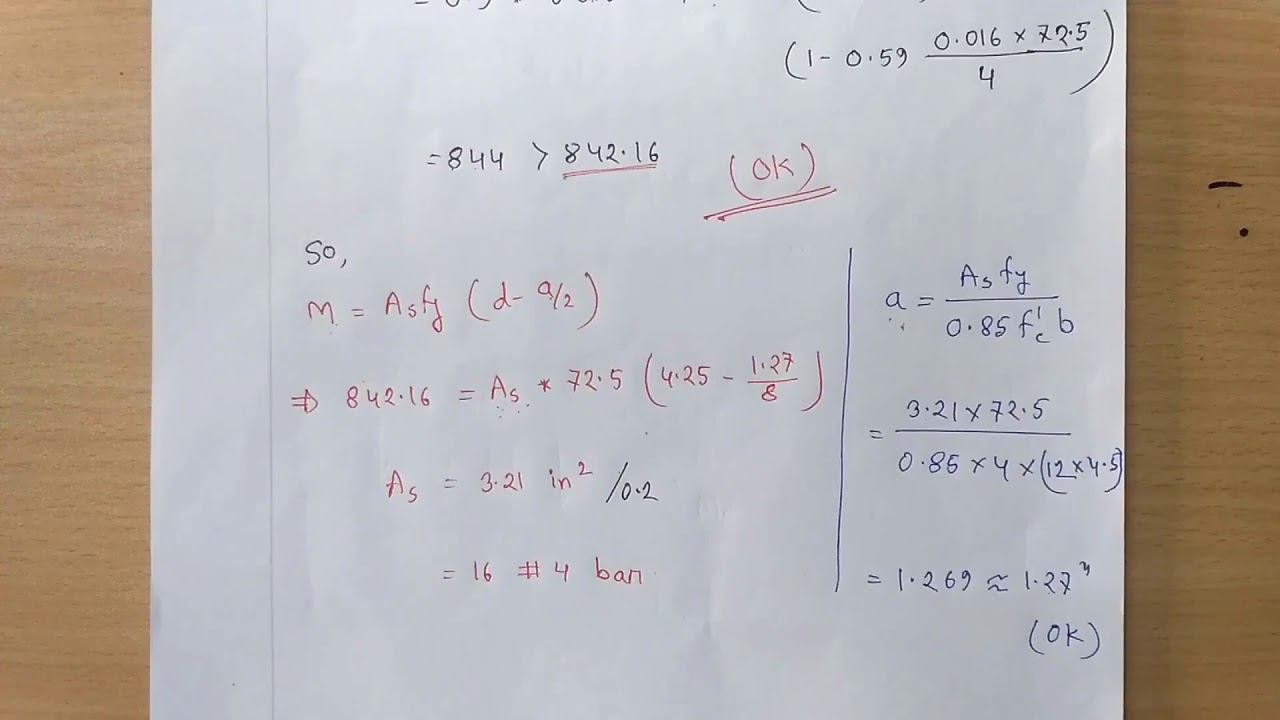 (1 - 0.59 0.016 × 72.5 / 4)
= 844 > 842.16 (OK)
So,
M = Asfy (d - a/2)
⇒ 842.16 = As * 72.5 (4.25 - 1.27/8)
As = 3.21 in² /0.2
= 16 # 4 bar
a = As fy / 0.85 f'c b
= 3.21 × 72.5 / 0.85 × 4 × (12 × 4.5)
= 1.269 ≈ 1.27"
(OK)